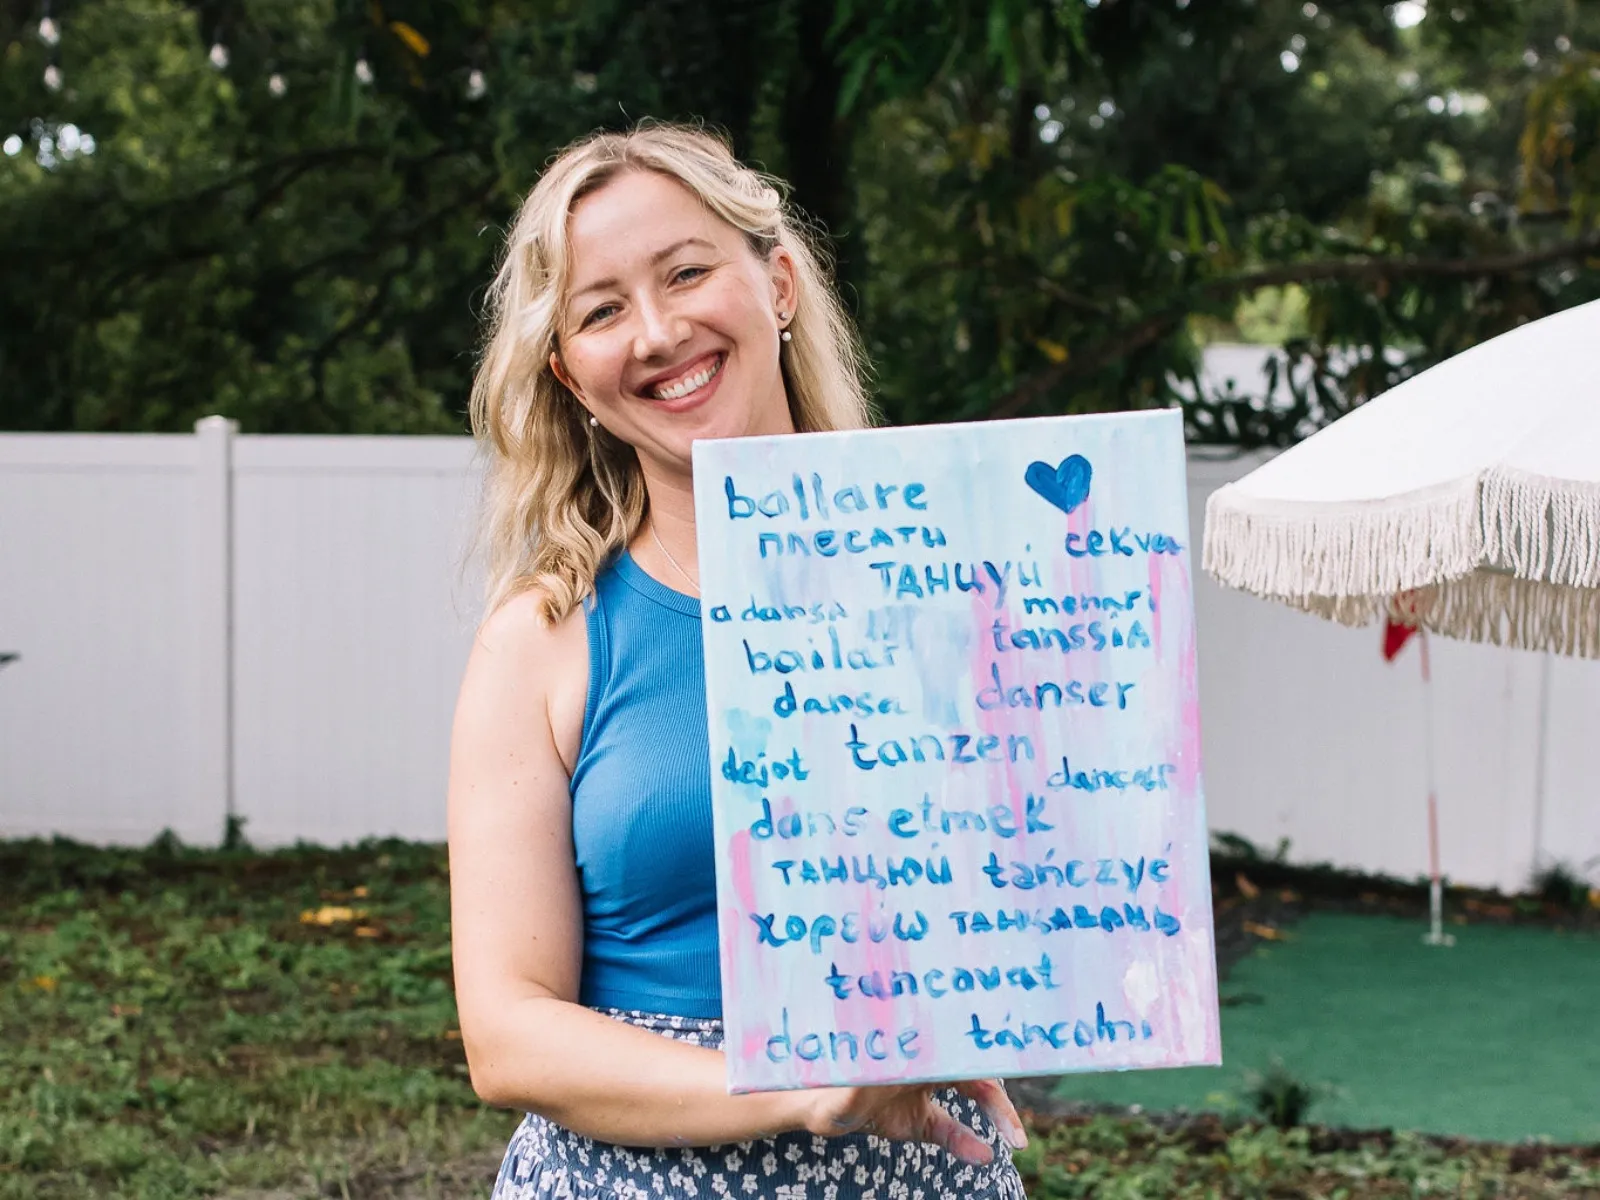 ballare
плесати секvea
танцуй
a dansa menari
bailar tanssia
dansa danser
tanzen
dejot dançar
dans etmek
танцюй tańczyć
χορεύω танцавань
tancovat
dance táncolni